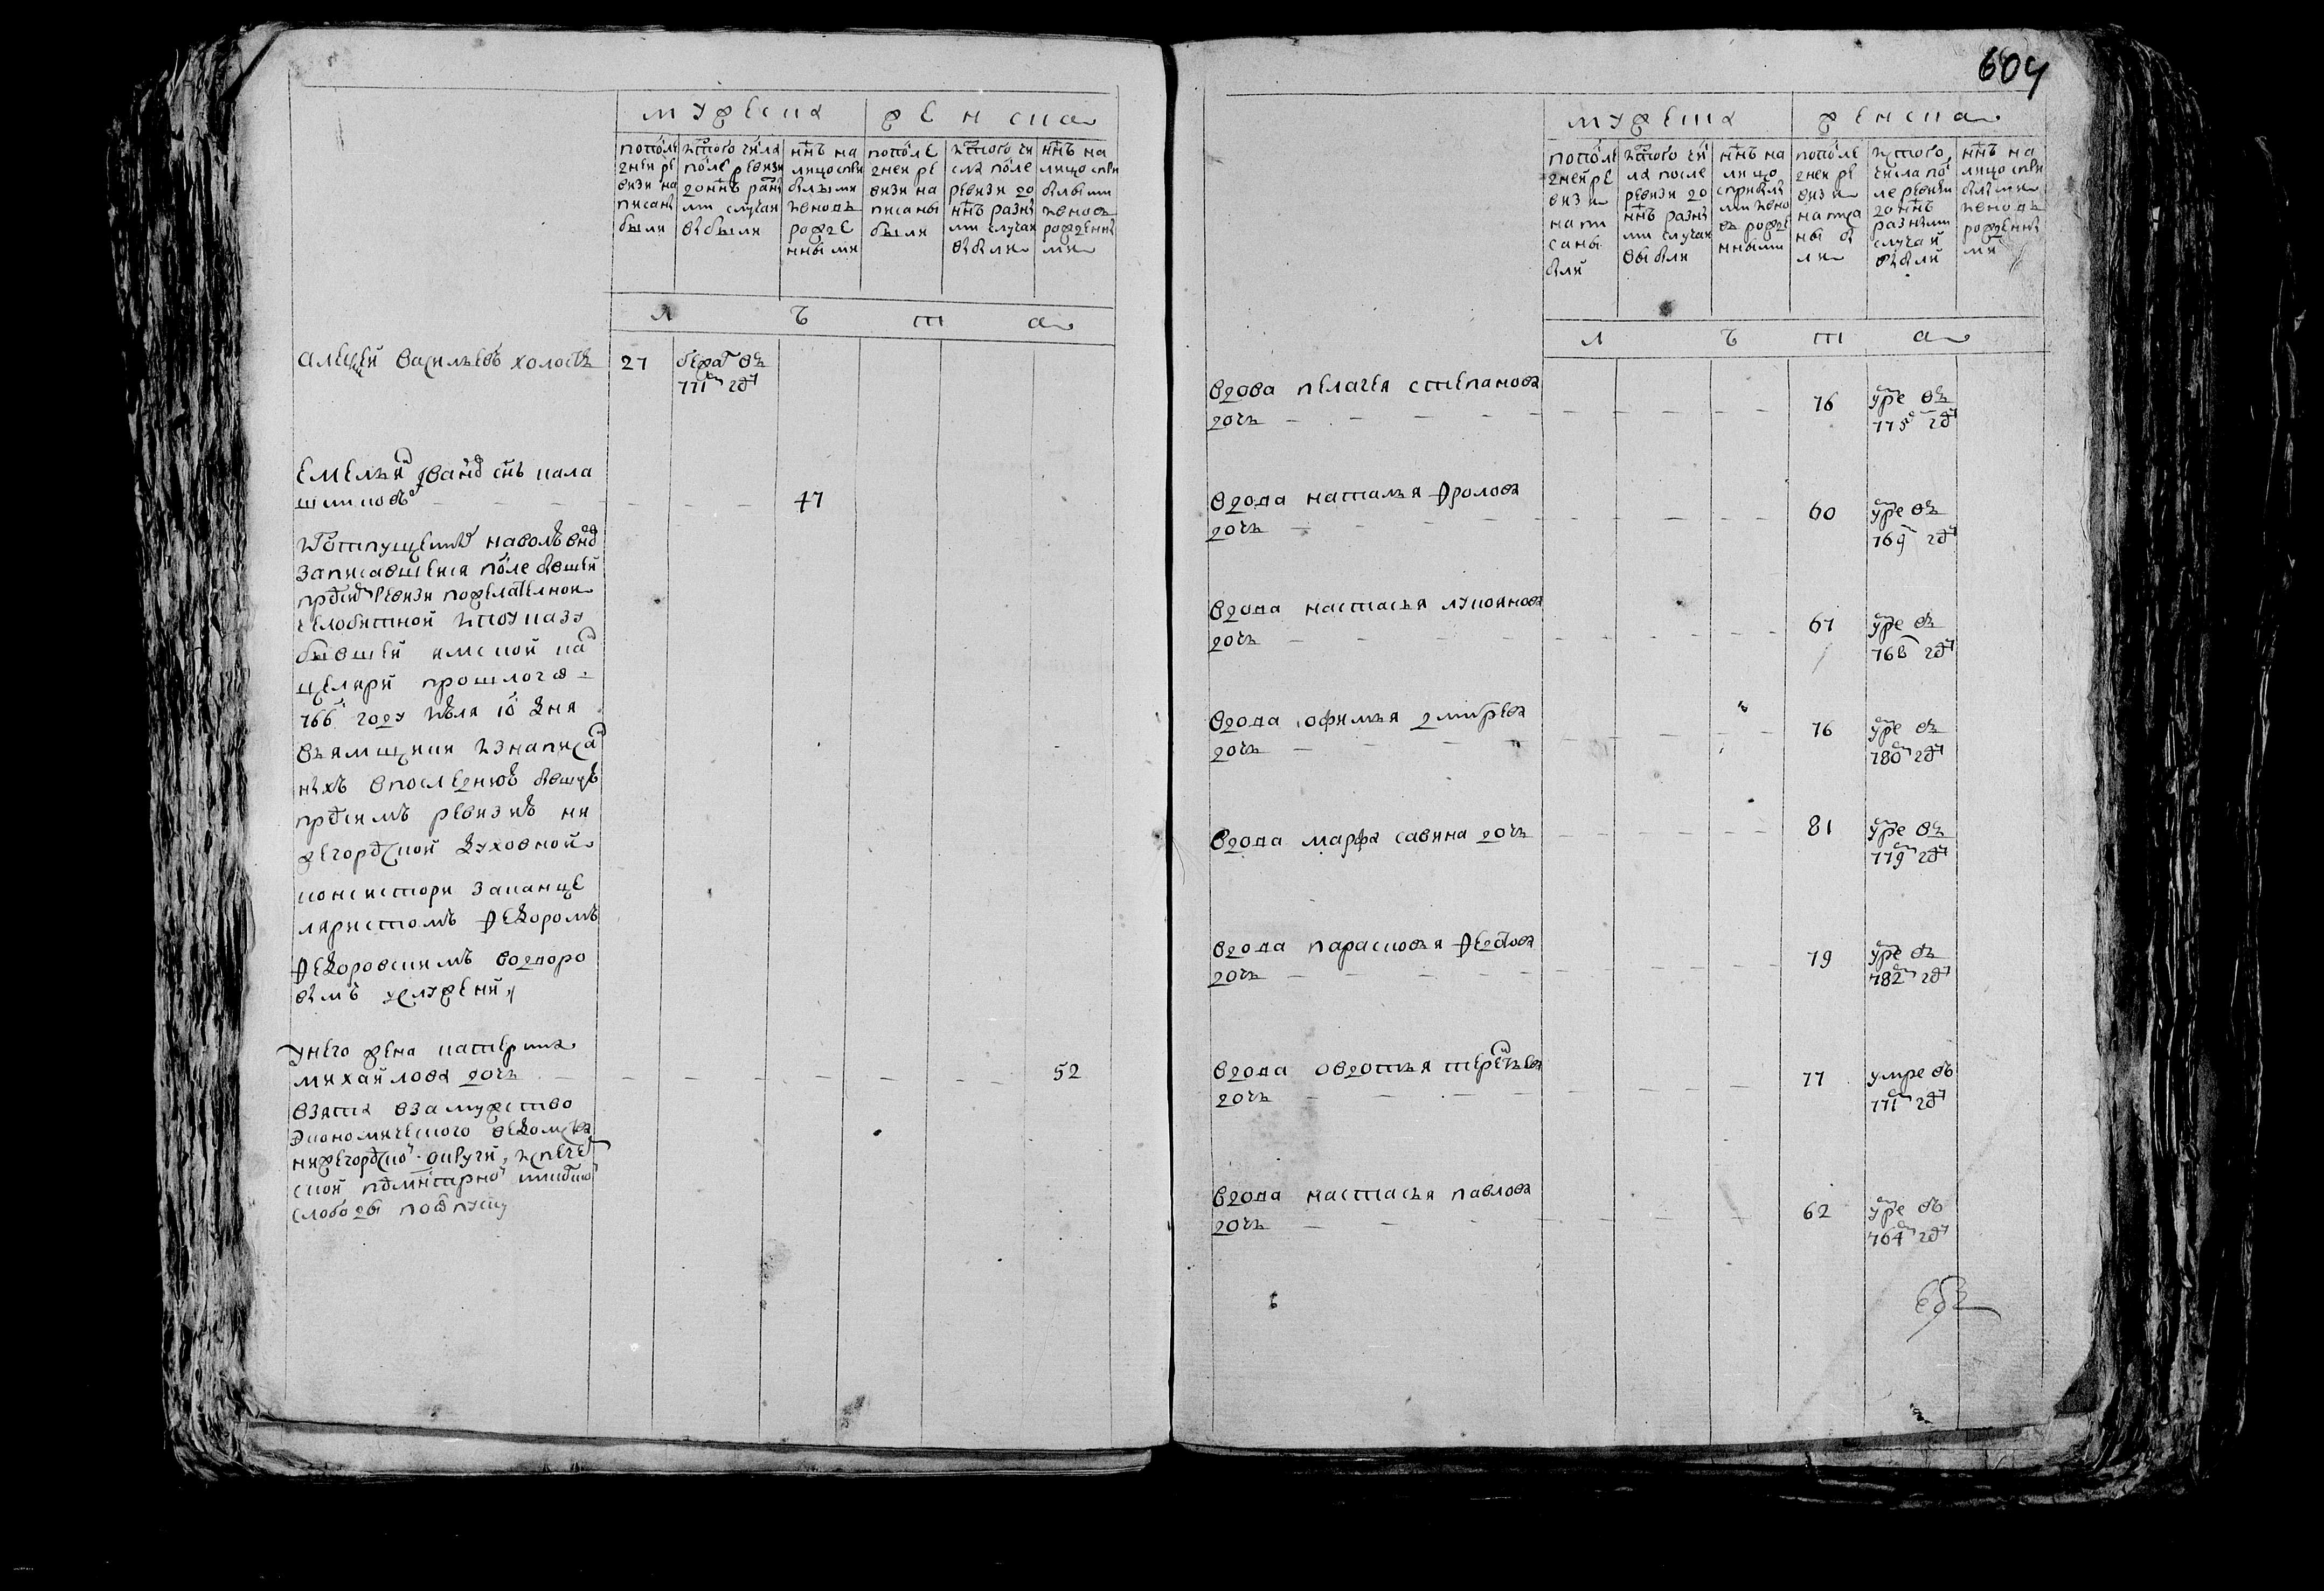 мужеска
женска
по посл
дней ре
визи на
писаны
были
ис того числа
после ревизи
до ннѣ разны
ми случаи
выбыли
ннѣ на
лицо спри
былыми
и вновь
рожде
нными
по после
дней ре
визи на
писаны
были
ис того чи
сла после
ревизи до
ннѣ разны
ми случаи
выбыли
ннѣ на
лицо спри
былыми
и вновь
рожденны
ми
л ѣ т а
алексей васильевъ холостъ
27
бежалъ въ
771м году
емельян Иванов снъ кала
шниковъ
47
Из отпущенных на волю вновь
записавшейся после бывшей
пред сим ревизи по желателной
челобитной и по указу
бывшей ямской кан
целяри прошлого
766 году июля 10 дня
въ ямщики из написан
ныхъ в последнюю бывшую
пред симъ ревизию ни
жегородской духовной
консистори за канце
ляристомъ Федоромъ
Федоровскимъ в
вымъ услужении
у него жена катерина
михайлова дочь
52
взята в замужство
экономического ведомства
нижегородской округи, ис пече
ской
слободы по отпуску
604
мужеска
женска
по посл
дней ре
визи
напи
саны
были
ис того чи
сла после
ревизи до
ннѣ разны
ми случаи
выбыли
ннѣ на
лицо
с прибылы
ми и вно
вь рожде
нными
по после
дней ре
визи
написа
ны бы
ли
ис того
числа по
сле ревизи
до ннѣ
разными
случаи
выбыли
ннѣ на
лицо спри
былыми
и вновь
рожденны
ми
л ѣ т а
вдова пелагея степанова
дочь
76
умре въ
775 году
вдова наталья Фролова
дочь
60
умре въ
769 году
вдова настасья лукоянова
дочь
67
умре въ
766 году
вдова офимья дмитрева
дочь
76
умре въ
780м году
вдова марфа савина дочь
81
умре въ
779м году
вдова парасковья Федотова
дочь
79
умре въ
782м году
вдова овдотья терентьева
дочь
77
умре въ
771м году
вдова настасья павлова
дочь
62
умре въ
764м году